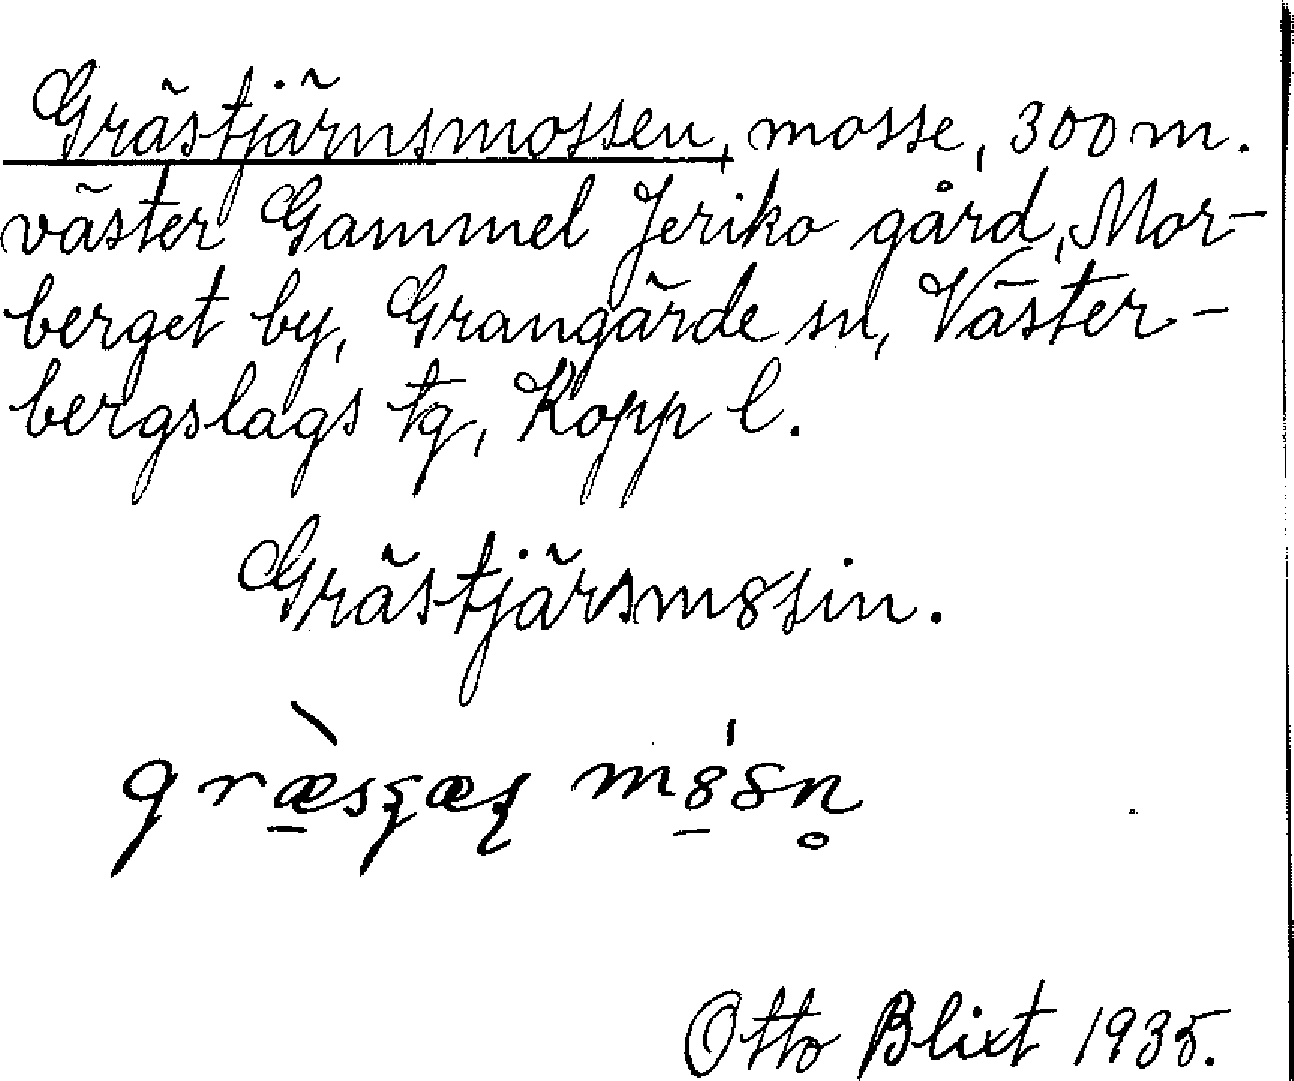 Grästjärnsmossen, mosse, 300 m.
väster Gammel Jeriko gård, Mor-
berget by, Grangärde sn, Väster-
bergslags tg, Kopp l.
Grästjärsm8sin.
Otto Blixt 1935.